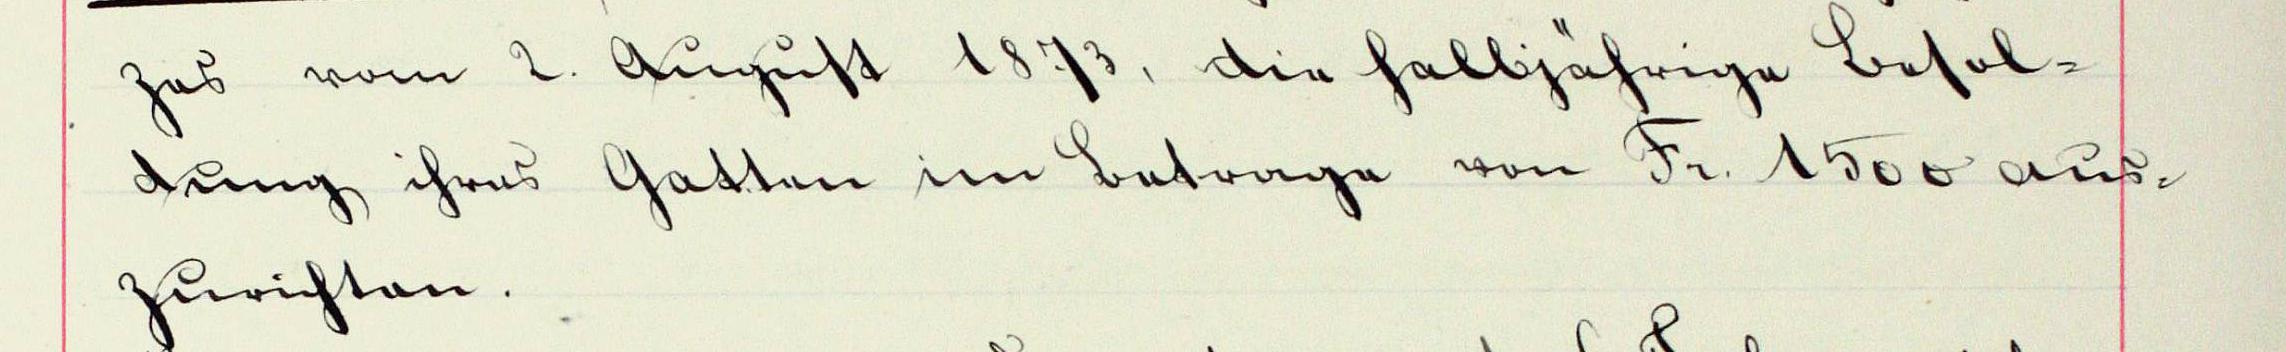 zes vom 2. August 1873, die halbjährige Besol-
dung ihres Gatten im Betrage von Fr. 1500 aus-
zurichten.